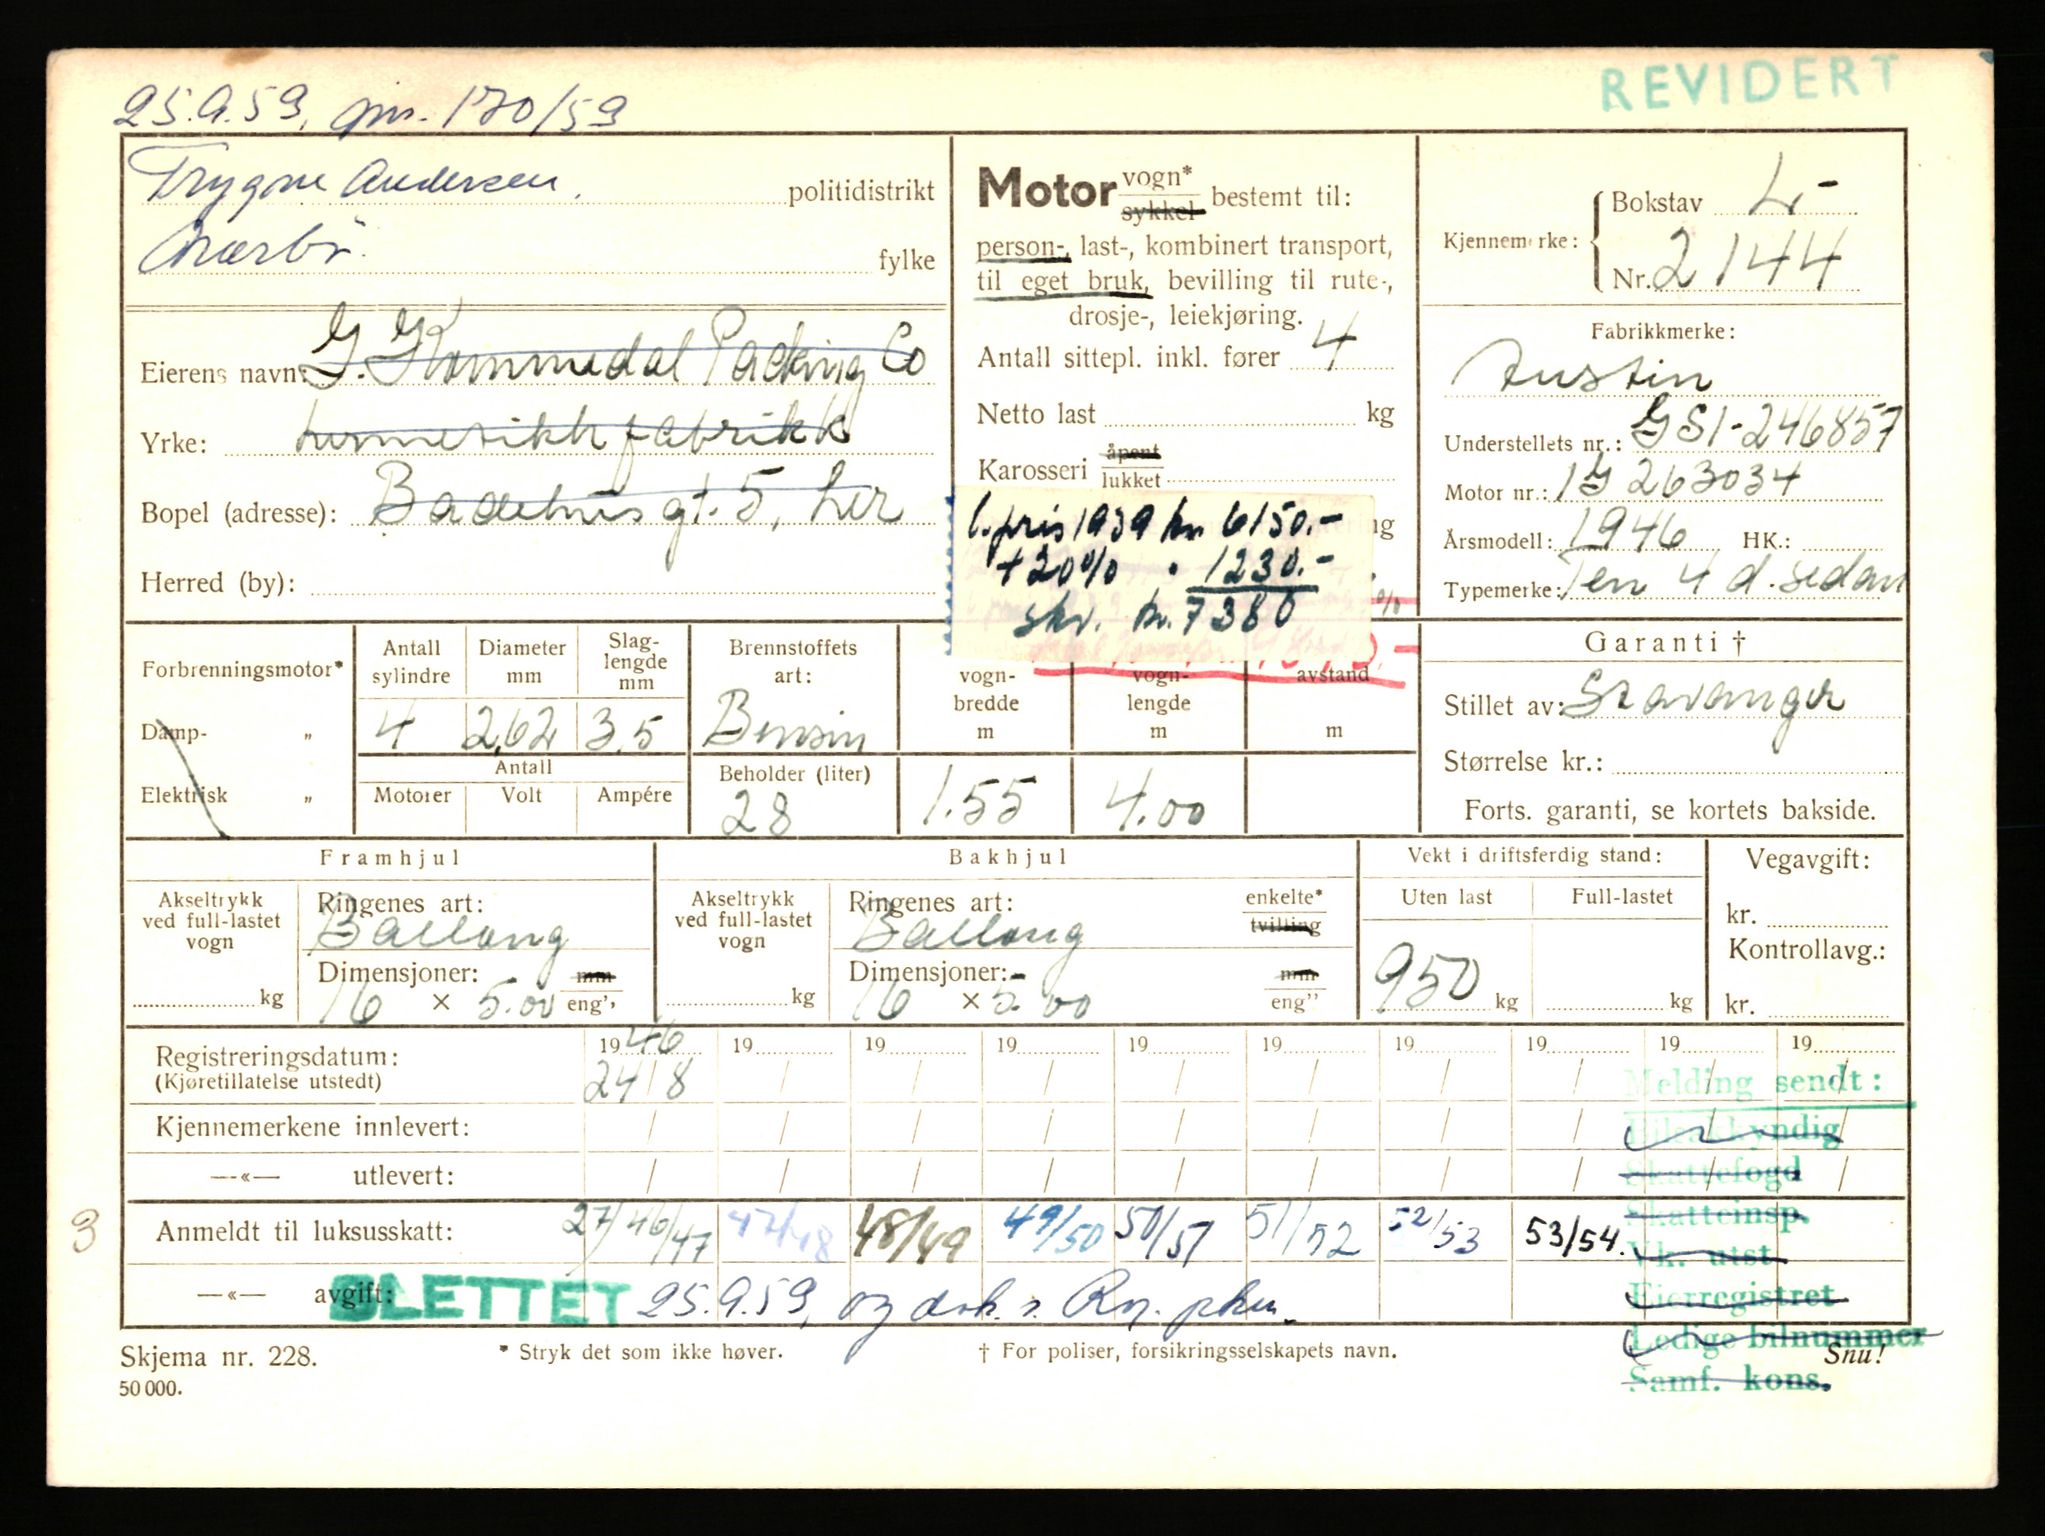 REVIDERT
25.9.59, 170/59
Trygve Andersen. politidistrikt
Nærbø. fylke
Eierens navn: G. Kommedal Packing Co
Yrke: hermetikkfabrikk
Bopel (adresse): Badehusgt. 5, her
Herred (by):
Motor vogn* sykkel bestemt til:
person-, last-, kombinert transport,
til eget bruk, bevilling til rute-,
drosje-, leiekjøring.
Antall sittepl. inkl. fører 4
Netto last kg
Karosseri åpent lukket
l. pris 1939 kr 6150.-
+20% 1230.-
skv. kr. 7380
Kjennemerke: Bokstav L-
Nr. 2144
Fabrikkmerke:
Austin
Understellets nr.: GS1-246857
Motor nr.: 1G 263034
Årsmodell: 1946 HK.:
Typemerke: Ten 4 d. sedan
Forbrenningsmotor*
Damp- „
Elektrisk „
Antall sylindre 4
Diameter mm 2.62
Slaglengde mm 3.5
Antall
Motorer Volt Ampére
Brennstoffets art: Bensin
Beholder (liter) 28
vognbredde m 1.55
vognlengde m 4.00
avstand m
Garanti †
Stillet av: Stavanger
Størrelse kr.:
Forts. garanti, se kortets bakside.
Framhjul
Akseltrykk ved full-lastet vogn kg
Ringenes art: Ballong
Dimensjoner: mm
16 × 5.00 eng''
Bakhjul
Akseltrykk ved full-lastet vogn kg
Ringenes art: enkelte* tvilling
Ballong
Dimensjoner: mm
16 × 5.00 eng''
Vekt i driftsferdig stand:
Uten last Full-lastet
950 kg kg
Vegavgift:
kr.
Kontrollavg.:
kr.
Registreringsdatum: 1946 19 19 19 19 19 19 19 19 19
(Kjøretillatelse utstedt) 24/8 / / / / / / / / /
Kjennemerkene innlevert: / / / / / / / / / /
—«— utlevert: / / / / / / / / / /
3 Anmeldt til luksusskatt: 27/46/47 47/48 48/49 49/50 50/51 51/52 52/53 53/54.
—«— avgift: SLETTET 25.9.59, og
Melding sendt:
Bilsakkyndig
Skattefogd
Skatteinsp.
Vk. utst
Eierregistret
Ledige bilnummer
Samf. kons.
Skjema nr. 228. * Stryk det som ikke høver. † For poliser, forsikringsselskapets navn. Snu!
50 000.